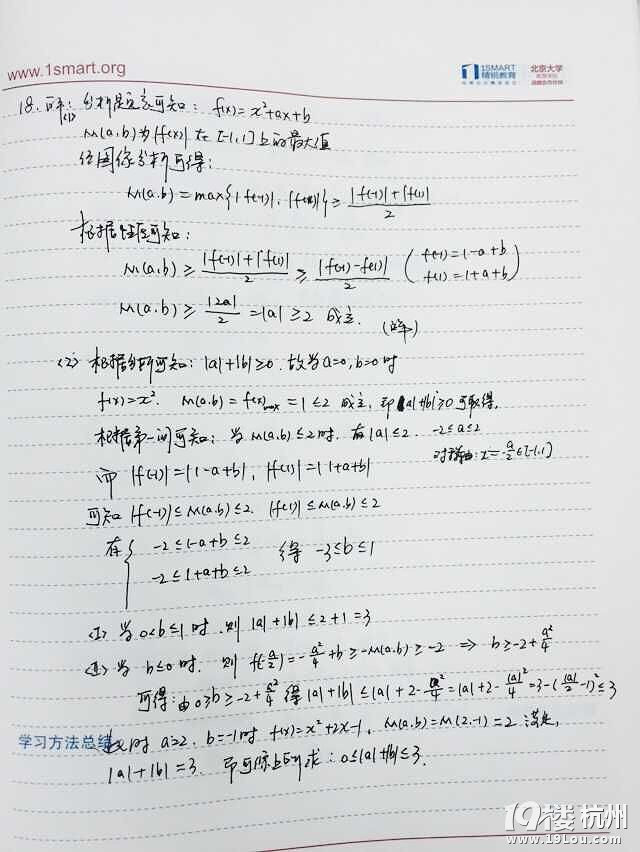 www.1smart.org
1SMART
精锐教育
北京大学
18. 解: 分析题意可知: f(x)=x²+ax+b
(1)
M(a,b)为|f(x)|在[-1,1]上的最大值
结图像分析可得:
M(a,b)=max{|f(-1)|, |f(1)|} ≥ (|f(-1)|+|f(1)|)/2
根据性质可知:
M(a,b) ≥ (|f(-1)|+|f(1)|)/2 ≥ |f(-1)-f(1)|/2 (f(-1)=1-a+b
f(1)=1+a+b)
M(a,b) ≥ |2a|/2 =|a| ≥2 成立.
<2> 根据分析可知: |a|+|b|≥0. 故当a=0, b=0时
f(x)=x². M(a,b)=f(x)max=1≤2 成立, 即|a|+|b|≥0可取得.
根据第一问可知: 当M(a,b)≤2时, 有|a|≤2. -2≤a≤2
对称轴: x=-a/2∈[-1,1]
而 |f(-1)|=|1-a+b|, |f(1)|=|1+a+b|
可知 |f(-1)|≤M(a,b)≤2. |f(1)|≤M(a,b)≤2
有{ -2≤1-a+b≤2 得 -3≤b≤1
-2≤1+a+b≤2
<I> 当0<b≤1时, 则|a|+|b|≤2+1=3
<II> 当b≤0时, 则 f(-a/2)=-a²/4+b≥-M(a,b)≥-2 ⇒ b≥-2+a²/4
可得: 由0≥b≥-2+a²/4 得|a|+|b|≤|a|+2-a²/4=|a|+2-|a|²/4=3-(|a|/2-1)²≤3
学习方法总结
此时 a=2, b=-1时 f(x)=x²+2x-1, M(a,b)=M(2,-1)=2 满足,
|a|+|b|=3. 即可综上所求: 0≤|a|+|b|≤3.
19楼杭州
www.19Lou.com